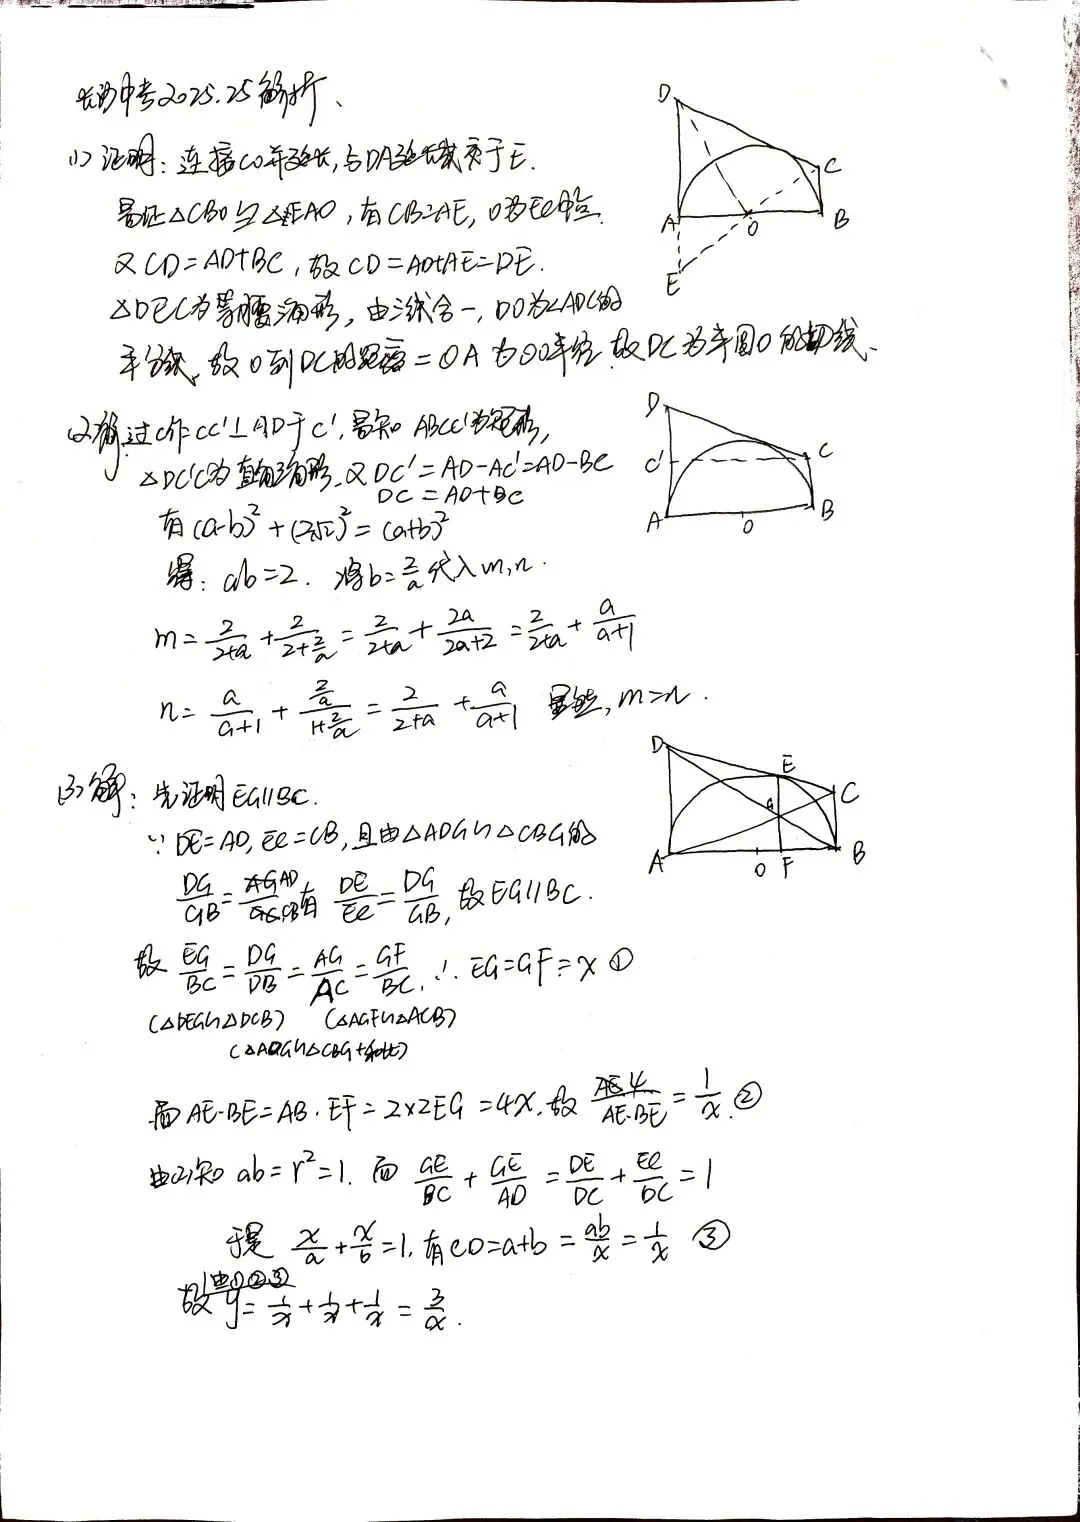 长沙中考2025.25解析、
(1) 证明：连接CO并延长，与DA延长线交于E.
易证△CBO≌△EAO，有CB=AE，O为EC中点.
又CD=AD+BC，故CD=AD+AE=DE.
△DEC为等腰三角形，由三线合一，DO为∠ADC的
平分线，故O到DC的距离=OA为⊙O半径，故DC为半圆O的切线、
(2)解：过C作CC'⊥AD于C'，易知ABCC'为矩形，
△DC'C为直角三角形，又DC'=AD-AC'=AD-BC
DC=AD+BC
有(a-b)²+(2√2)²=(a+b)²
得：ab=2. 将b=2/a代入m,n.
m=2/(2+a)+2/(2+2/a)=2/(2+a)+2a/(2a+2)=2/(2+a)+a/(a+1)
n=a/(a+1)+(2/a)/(1+2/a)=2/(2+a)+a/(a+1) 显然，m=n.
(3)解：先证明EG∥BC.
∵DE=AD, EC=CB, 且由△ADG∽△CBG的
DG/GB=AD/CB有 DE/EC=DG/GB, 故EG∥BC.
故 EG/BC=DG/DB=AG/AC=GF/BC, ∴EG=GF=x ①
(△DEG∽△DCB) (△AGF∽△ACB)
(△ADG∽△CBG+和比)
而AE·BE=AB·EF=2×2EG=4x, 故 4/(AE·BE)=1/x. ②
由(2)知 ab=r²=1. 而 GE/BC+GE/AD=DE/DC+EC/DC=1
于是 x/a+x/b=1, 有CD=a+b=ab/x=1/x ③
由①②③
故y=1/x+1/x+1/x=3/x.
D
C
A
O
B
E
D
C'
C
A
O
B
D
E
G
C
A
O
F
B